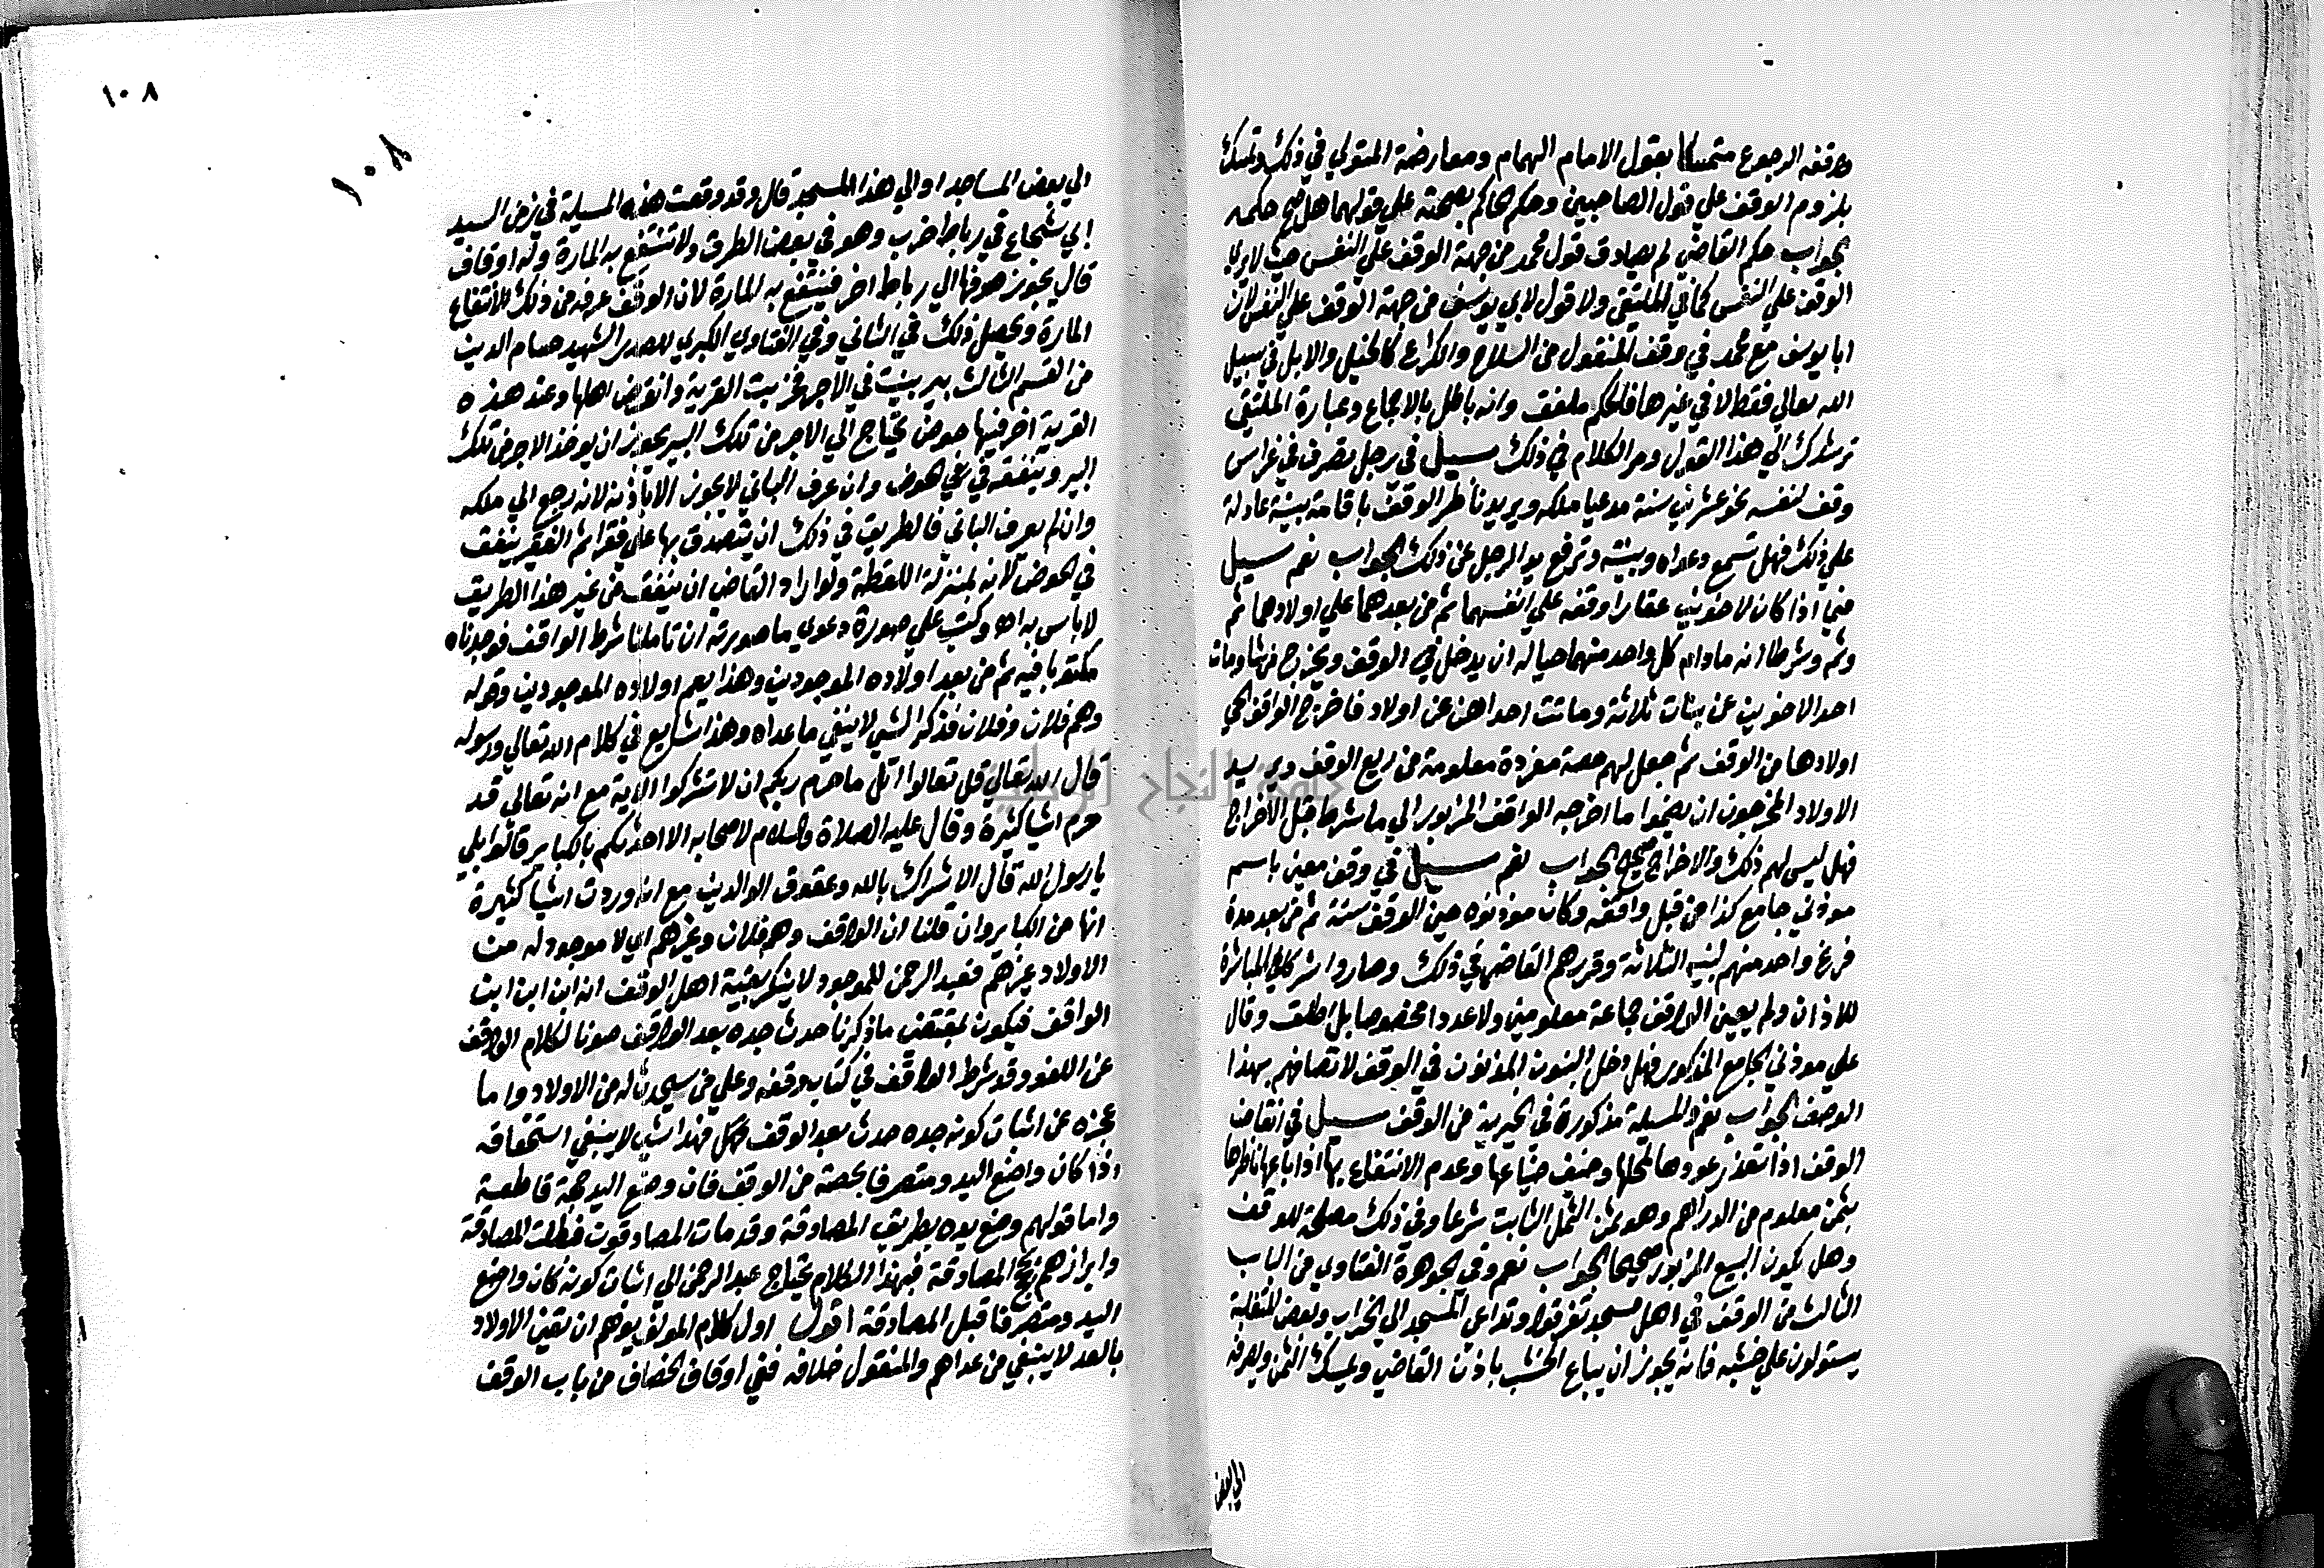 وقفه الرجوع متمسكا بقول الامام الهمام ومعارضة المتولي في ذلك وتمسك
بلزوم الوقف علي قول الصاحبين وحكم الحاكم بصحته علي قولهما هل صح حكمه
الجواب حكم القاضي لم يصادف قول محمد من جهة الوقف علي النفس حيث لا يري
الوقف علي النفس كما في الملتقي ولا قول لابي يوسف من جهة الوقف علي النفس لان
ابا يوسف مع محمد في وقف المنقول من السلاح والكراع كالخيل والابل في سبيل
الله تعالي فقط لا في غيرها فالحكم ملفق وانه باطل بالاجماع وعبارة الملتقي
ترشدك الي هذا القول ومر الكلام في ذلك سيل في رجل تصرف في غراس
وقف لنفسه نحو عشرين سنة مدعيا ملكه ويريد ناظر الوقف باقامة بينة عادلة
علي ذلك فهل تسمع دعواه وبينته وترفع يد الرجل عن ذلك الجواب نعم سيل
فيما اذا كان لاخوين عقار اوقفه علي انفسهما ثم من بعدهما علي اولادهما ثم
وثم وشرطا انه مادام كل واحد منهما حيا له ان يدخل في الوقف ويخرج من شا ومات
احد الاخوين عن بنات ثلاثة وماتت احداهن عن اولاد فاخرج الواقف الحي
اولادها من الوقف ثم جعل لهم حصة مفردة معلومة من ريع الوقف ويريد
الاولاد المخرجون ان يضموا ما اخرجه الواقف المزبور الي ما شرط قبل الاخراج
فهل ليس لهم ذلك والاخراج صحيح الجواب نعم سيل في وقف معين باسم
موذني جامع كذا من قبل واقفه وكان موذنوه حين الوقف ستة ثم من بعد مدة
فرغ واحد منهم لبنيه الثلاثة وقررهم القاضي في ذلك وصاروا شركا في المباشرة
للاذان ولم يعين الواقف جماعة معلومين ولا عددا مخصوصا بل اطلق وقال
علي موذني الجامع المذكور فهل دخل البنون الموذنون في الوقف لاتصافهم بهذا
الوصف الجواب نعم والمسيلة مذكورة في الخيرية من الوقف سيل في انقاض
الوقف اذا تعذر عودها لمحلها وخيف ضياعها وعدم الانتفاع بها اذا باعها ناظرها
بثمن معلوم من الدراهم وهو ثمن المثل الثابت شرعا وفي ذلك مصلحة للوقف
وهل يكون البيع المزبور صحيحا الجواب نعم وفي الجوهرة الفتاوي من الباب
الثالث من الوقف في اهل مسجد تفرقوا وتداعي المسجد الي الخراب وبعض المتغلبة
يستولون علي خشبه فانه يجوز ان يباع الخشب باذن القاضي ويمسك الثمن ويصرفه
الي بعض
١٠٨
١٠٨
الي بعض المساجد او الي هذا المسجد قال وقد وقعت هذه المسيلة في زمن السيد
ابي شجاع في رباط خرب وهو في بعض الطرق ولا تنتفع به المارة وله اوقاف
قال يجوز صرفها الي رباط اخر فينتفع به المارة لان الوقف غرضه من ذلك انتفاع
المارة ويحصل ذلك في الثاني وفي الفتاوي الكبري للصدر الشهيد حسام الدين
من القسم الثالث بير بنيت في الاجر فخربت القرية وانقرض اهلها وعند هذه
القرية اخر فيها حوض يحتاج الي الاجر من تلك البير يجوز ان يوخذ الاجر من تلك
البير وينفقه في الحوض وان عرف الباني لا يجوز الا باذنه لانه رجع الي ملكه
وان لم يعرف الباني فالطريق في ذلك ان يتصدق بها علي فقير ثم الفقير ينفق
في الحوض لانه بمنزلة اللقطة ولو اراد القاضي ان ينفق من غير هذا الطريق
لا باس به اه وكتب علي صورة دعوي ما صورته ان تاملنا شرط الواقف فوجدناه
مكتوبا فيه ثم من بعد اولاده الموجودين وهذا يعم اولاده الموجودين وقوله
وهم فلان وفلان فذكر الشي لا ينفي ما عداه وهذا شايع في كلام الله تعالي ورسوله
قال الله تعالي قل تعالوا اتل ما حرم ربكم ان لا تشركوا الاية مع انه تعالي قد
حرم اشيا كثيرة وقال عليه الصلاة والسلام لاصحابه الا احدثكم بالكباير قالوا بلي
يا رسول الله قال الاشراك بالله وعقوق الوالدين مع انه وردت اشيا كثيرة
انها من الكباير وان قلنا ان الواقف وهم فلان وغيرهم اي لا موجود له من
الاولاد غيرهم فعبد الرحمن الموجود لا ينكر بقية اهل الوقف انه ابن ابن ابن
الواقف فيكون بمقتضي ما ذكرنا حدث جده بعد الواقف صونا لكلام الواقف
عن اللغو وقد شرط الواقف في كتاب وقفه وعلي من سيحدث له من الاولاد واما
عجزه عن اثبات كونه جده حدث بعد الوقف فهذا شي لا ينفي استحقاقه
اذا كان واضع اليد ومتصرفا بحصة من الوقف فان وضع اليد حجة قاطعة
واما قولهم وضع يده بطريق المصادقة وقد مات المصادقون فبطلت المصادقة
وابرازهم حجج المصادقة فبهذا الكلام يحتاج عبد الرحمن الي اثبات كونه كان واضع
اليد ومتصرفا قبل المصادقة اقول اول كلام المولف يوهم ان تعين الاولاد
بالعد لا ينفي من عداهم والمنقول خلافه ففي اوقاف الخصاف من باب الوقف